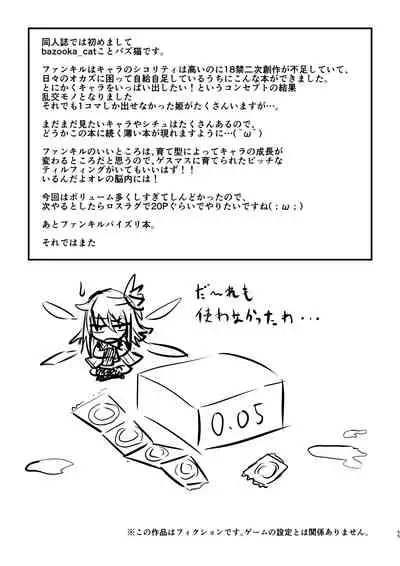 同人誌では初めまして
bazooka_catことバズ猫です。
ファンキルはキャラのシコリティは高いのに18禁二次創作が不足していて、
日々のオカズに困って自給自足しているうちにこんな本ができました。
とにかくキャラをいっぱい出したい！というコンセプトの結果
乱交モノとなりました
それでも1コマしか出せなかった姫がたくさんいますが…。
まだまだ見たいキャラやシチュはたくさんあるので、
どうかこの本に続く薄い本が現れますように…(´ω｀)
ファンキルのいいところは、育て型によってキャラの成長が
変わるところだと思うので、ゲスマスに育てられたビッチな
ティルフィングがいてもいいはず！！
いるんだよオレの脳内には！
今回はボリューム多くしすぎてしんどかったので、
次やるとしたらロスラグで20Pぐらいでやりたいですね(；ω；)
あとファンキルパイズリ本。
それではまた
だ～れも
使わなかったわ・・・
0.05
※この作品はフィクションです。ゲームの設定とは関係ありません。